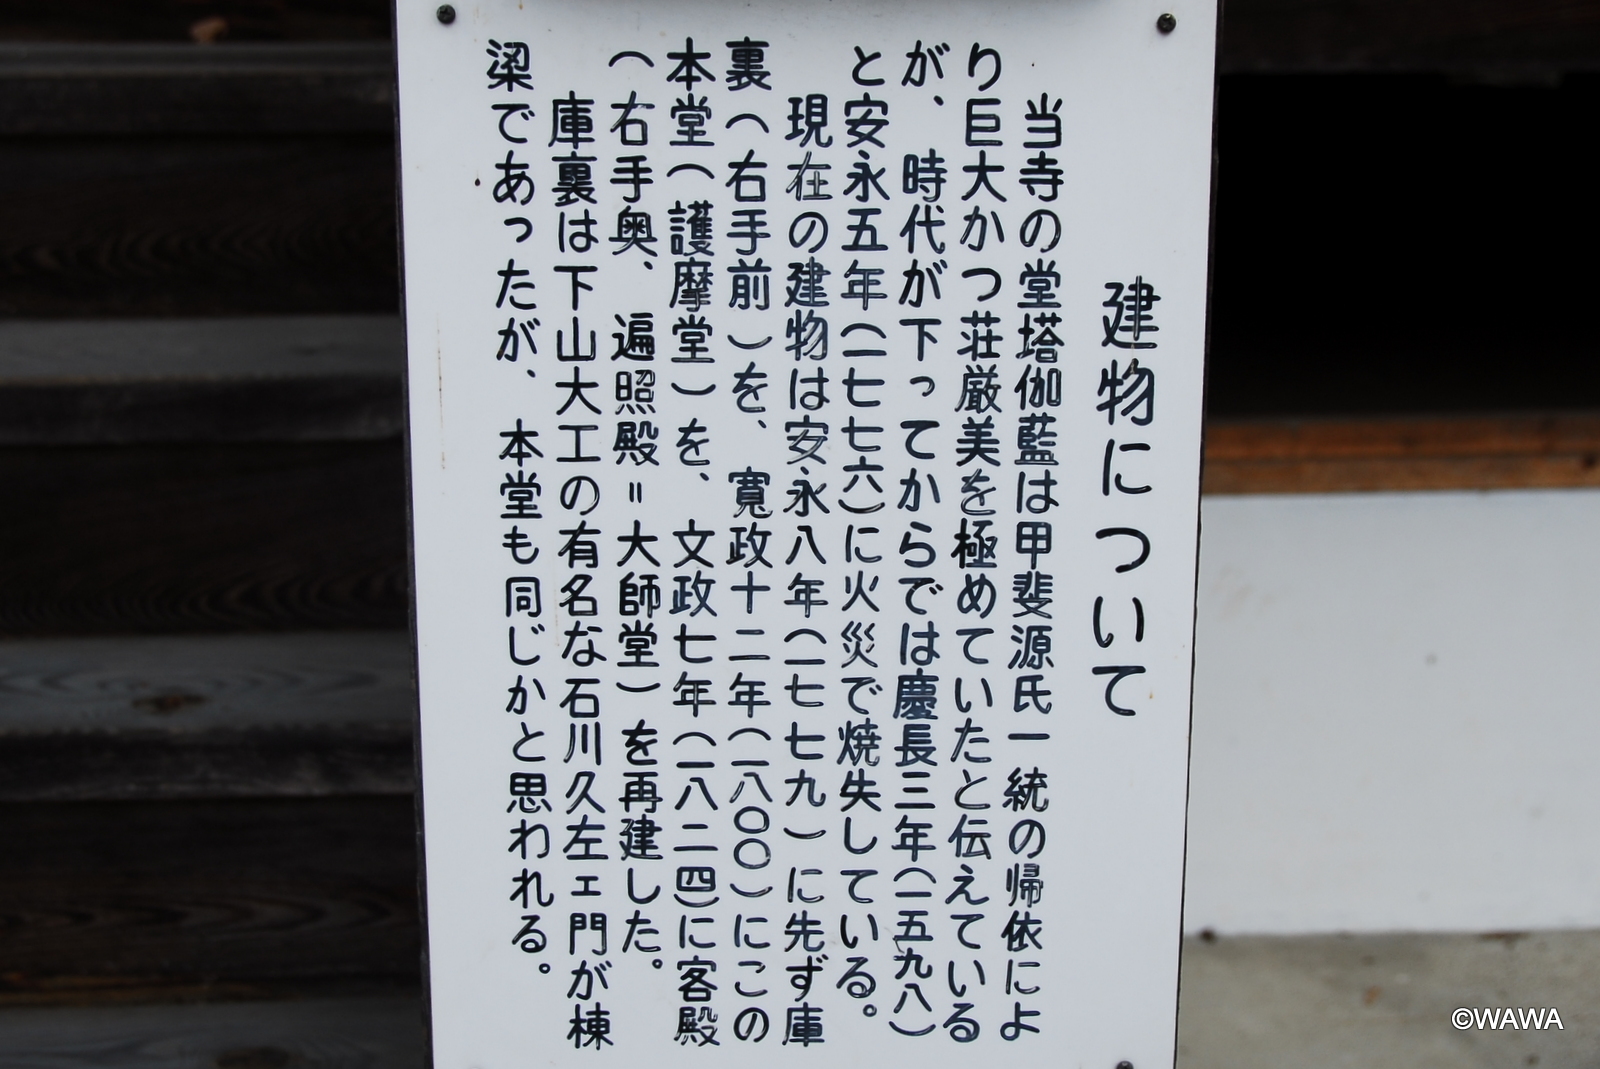 建物について
当寺の堂塔伽藍は甲斐源氏一統の帰依によ
り巨大かつ荘厳美を極めていたと伝えている
が、時代が下ってからでは慶長三年(一五九八)
と安永五年(一七七六)に火災で焼失している。
現在の建物は安永八年(一七七九)に先ず庫
裏(右手前)を、寛政十二年(一八〇〇)にこの
本堂(護摩堂)を、文政七年(一八二四)に客殿
(右手奥、遍照殿=大師堂)を再建した。
庫裏は下山大工の有名な石川久左ェ門が棟
梁であったが、本堂も同じかと思われる。
©WAWA